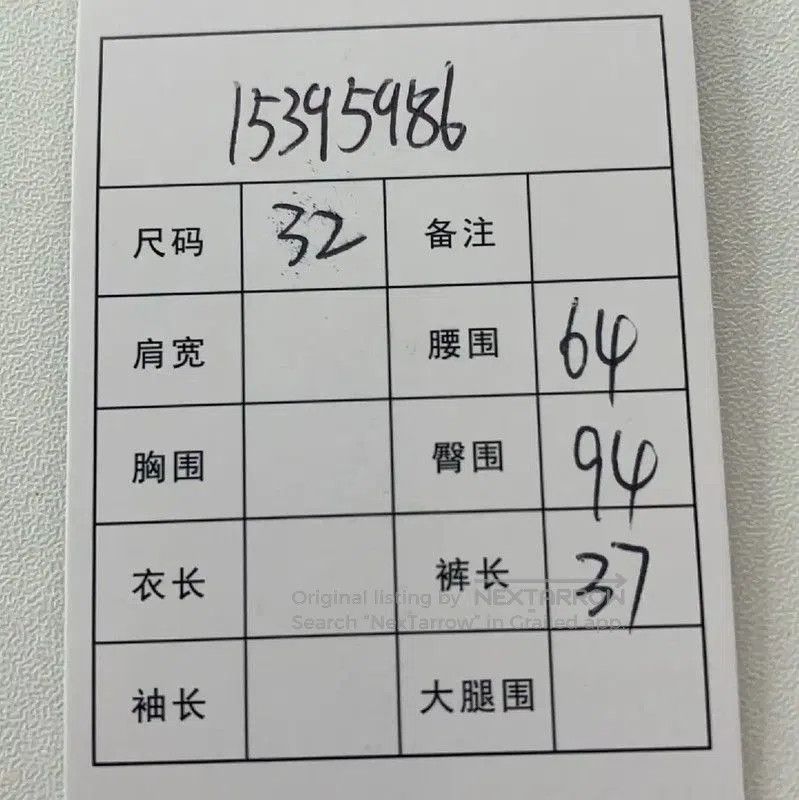 15395986
尺码 32 备注
肩宽 腰围 64
胸围 臀围 94
衣长 裤长 37
Original listing by NEXTARROW
Search "NexTarrow" in Grailed app.
袖长 大腿围